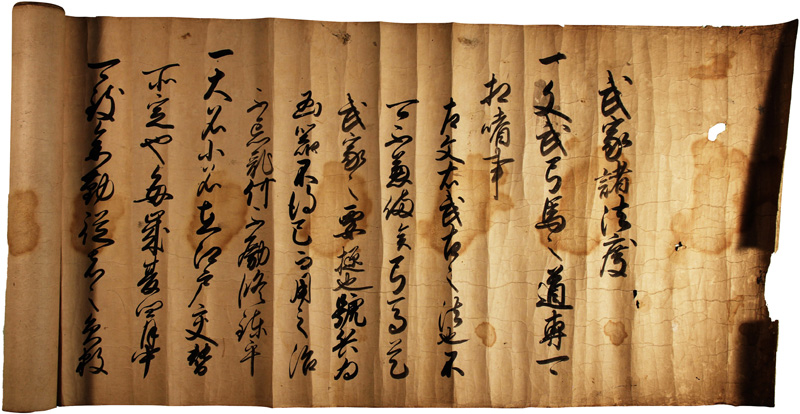 武家諸法度
一文武弓馬之道專可
相嗜事
左文右武古之法也不
可不兼備矣弓馬是
武家之要枢也號兵為
凶器不得已而用之治
不忘乱何不勵修錬乎
一大名小名在江戸交替
所定也毎歳夏四月中
可致参勤從者之員数